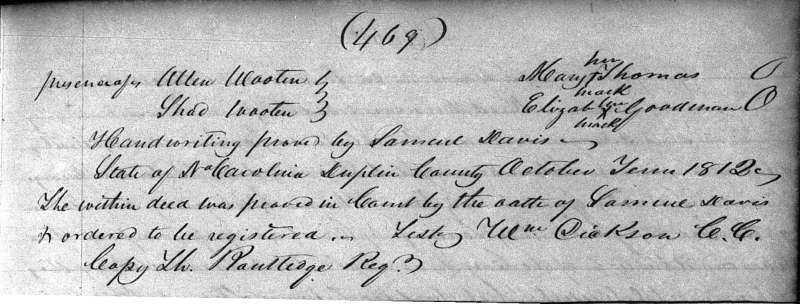 (469)
presence of Allen Wooten } Mary her mark Thomas O
Shad Wooten } Elizab her mark Goodman O
Handwriting proved by Samuel Davis
State of No Carolina Duplin County October Term 1812
The within deed was proved in Court by the oath of Samuel Davis
& ordered to be registered Test Wm Dickson C.C.
Copy Th. Routledge Regr